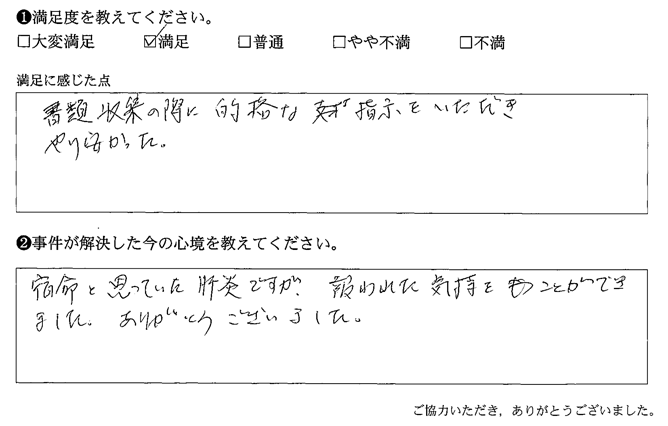 ❶満足度を教えてください。
□大変満足 ☑満足 □普通 □やや不満 □不満
満足に感じた点
書類収集の際に的格な 指示をいただき
やり安かった。
❷事件が解決した今の心境を教えてください。
宿命と思っていた肝炎ですが、報われた気持をもつことができ
ました。ありがとうございました。
ご協力いただき，ありがとうございました。